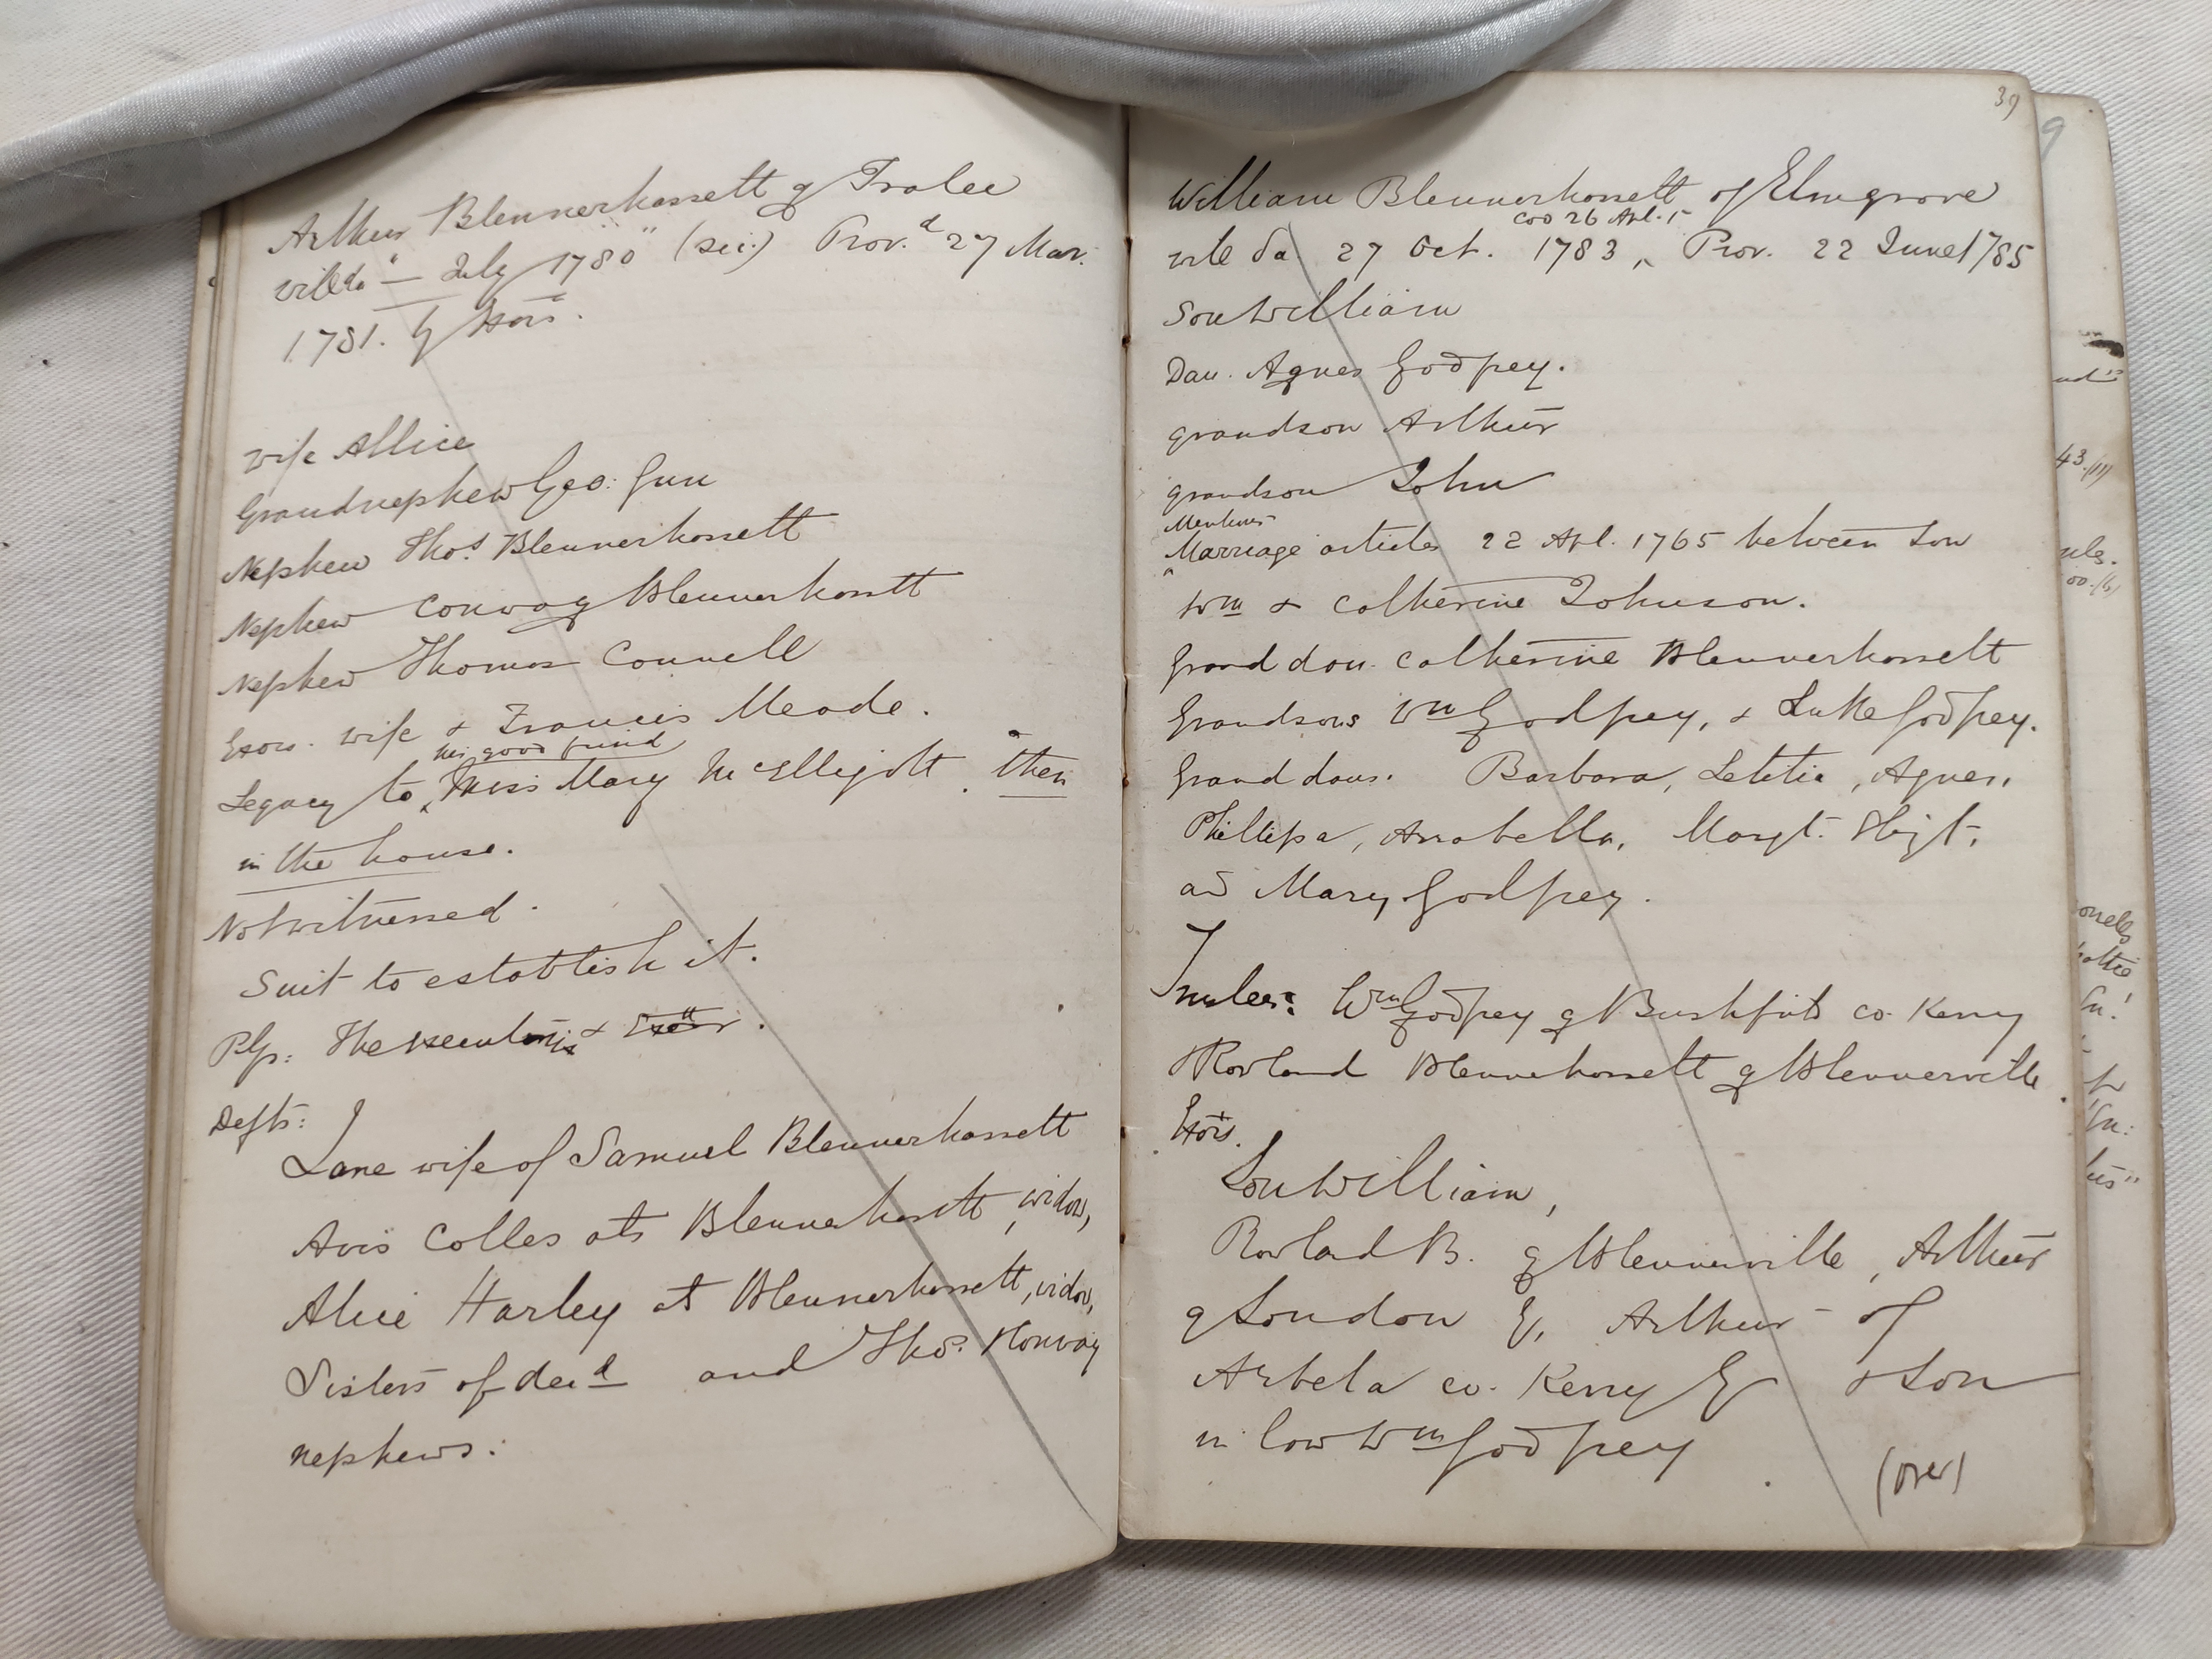 Arthur Blennerhassett of Tralee
will da "— July 1780" (sic.) Prov.d 27 Mar.
1781. by Exors.
wife Allice
Grandnephew Geo: Gun
Nephew Thos. Blennerhassett
Nephew Conway Blennerhassett
Nephew Thomas Connell
Exors. wife & Francis Meade.
his good friend
Legacy to Miss Mary McElligott. then
in the house.
Not witnessed.
Suit to establish it.
Plfs: The executrix & Exor.
Defts:
Jane wife of Samuel Blennerhassett
Avis Colles als Blennerhassett, widow,
Alice Harley als Blennerhassett, widow,
Sisters of decd and Thos. Conway
nephews:
39
William Blennerhassett of Elmgrove
cod 26 Apl.
will da 27 Oct. 1783, Prov. 22 June 1785
Son William
Dau. Agnes Godfrey.
grandson Arthur
grandson John
Mentions
Marriage articles 22 Apl. 1765 between Son
Wm & Catherine Johnson.
Grand dau. Catherine Blennerhassett
Grandsons Wm Godfrey, & Luke Godfrey.
Grand daus. Barbara, Letitia, Agnes,
Phillipa, Arrabella, Margt.
and Mary Godfrey.
Trustees: Wm Godfrey of Bushfield co. Kerry
& Rowland Blennerhassett of Blennerville
Exors.
Son William,
Rowland B. of Blennerville, Arthur
of London E, Arthur of
Arbela co. Kerry E & Son
in law Wm Godfrey
(over)
9